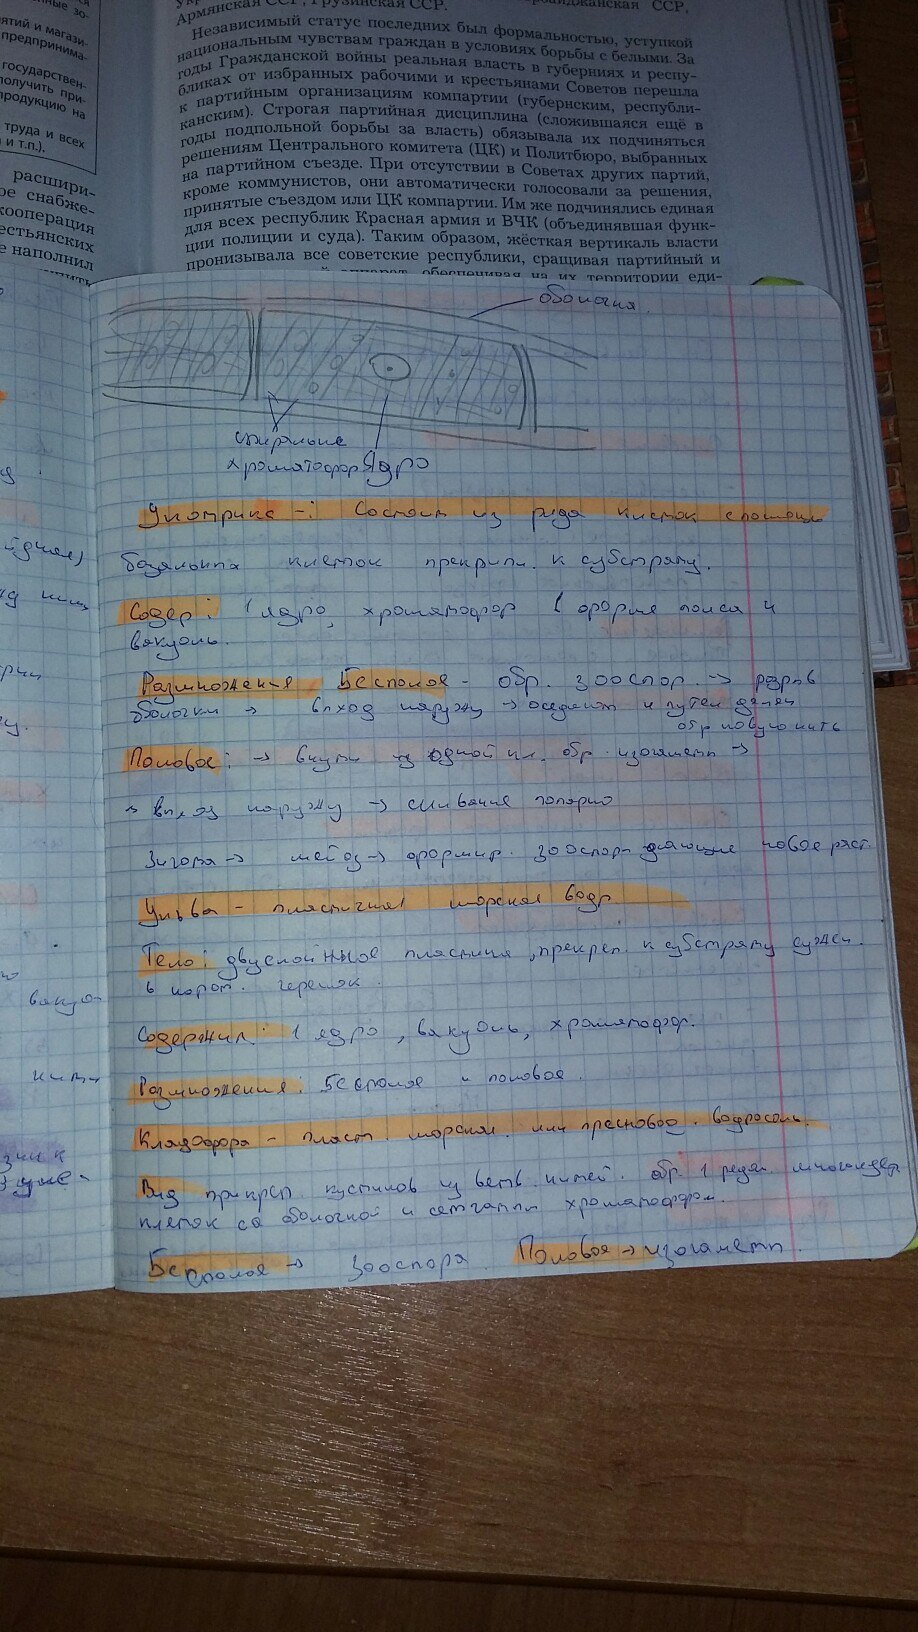 ные зо-
ятий и магази-
предпринима-
государствен-
получить при-
продукцию на
труда и всех
и т.п.).
расшири-
ое снабже-
кооперация
естьянских
е наполнил
Армянская ССР, Грузинская ССР.
Независимый статус последних был формальностью, уступкой
национальным чувствам граждан в условиях борьбы с белыми. За
годы Гражданской войны реальная власть в губерниях и респу-
бликах от избранных рабочими и крестьянами Советов перешла
к партийным организациям компартии (губернским, республи-
канским). Строгая партийная дисциплина (сложившаяся ещё в
годы подпольной борьбы за власть) обязывала их подчиняться
решениям Центрального комитета (ЦК) и Политбюро, выбранных
на партийном съезде. При отсутствии в Советах других партий,
кроме коммунистов, они автоматически голосовали за решения,
принятые съездом или ЦК компартии. Им же подчинялись единая
для всех республик Красная армия и ВЧК (объединявшая функ-
ции полиции и суда). Таким образом, жёсткая вертикаль власти
пронизывала все советские республики, сращивая партийный и
аппарат, обеспечивая на их территории еди-
оболочка
спиральные
хроматофор Ядро
Улотрикс -: Состоит из ряда клеток с помощью
базальна клеток прекрипл. к субстрату.
Содер: 1 ядро, хроматофор в форме пояса и
вакуоль.
Размножения Бесполое - обр. зооспор. → разрыв
оболочки → выход наружу → оседают и путем делен
обр новую нить
Половое: → внутри одной кл. обр. изогаметы →
→ выход наружу → сливание попарно
Зигота → мейоз → формир. зооспор дающие новое раст.
Ульва - пластинчат морская водр
Тело: двуслойнное пластина, прекреп. к субстрату сужен.
в корот. черешок.
Содержил: 1 ядро, вакуоль, хроматофор.
Размножения: бесполое и половое.
Кладофора - пласт. морская. или пресновод. водросоль.
Вид прикреп. кустиков из ветв. нитей. обр. 1 рядн. многоядер.
клеток со оболочкой и сетчатым хроматофором.
Бесполое → Зооспора Половое → изогаметы.